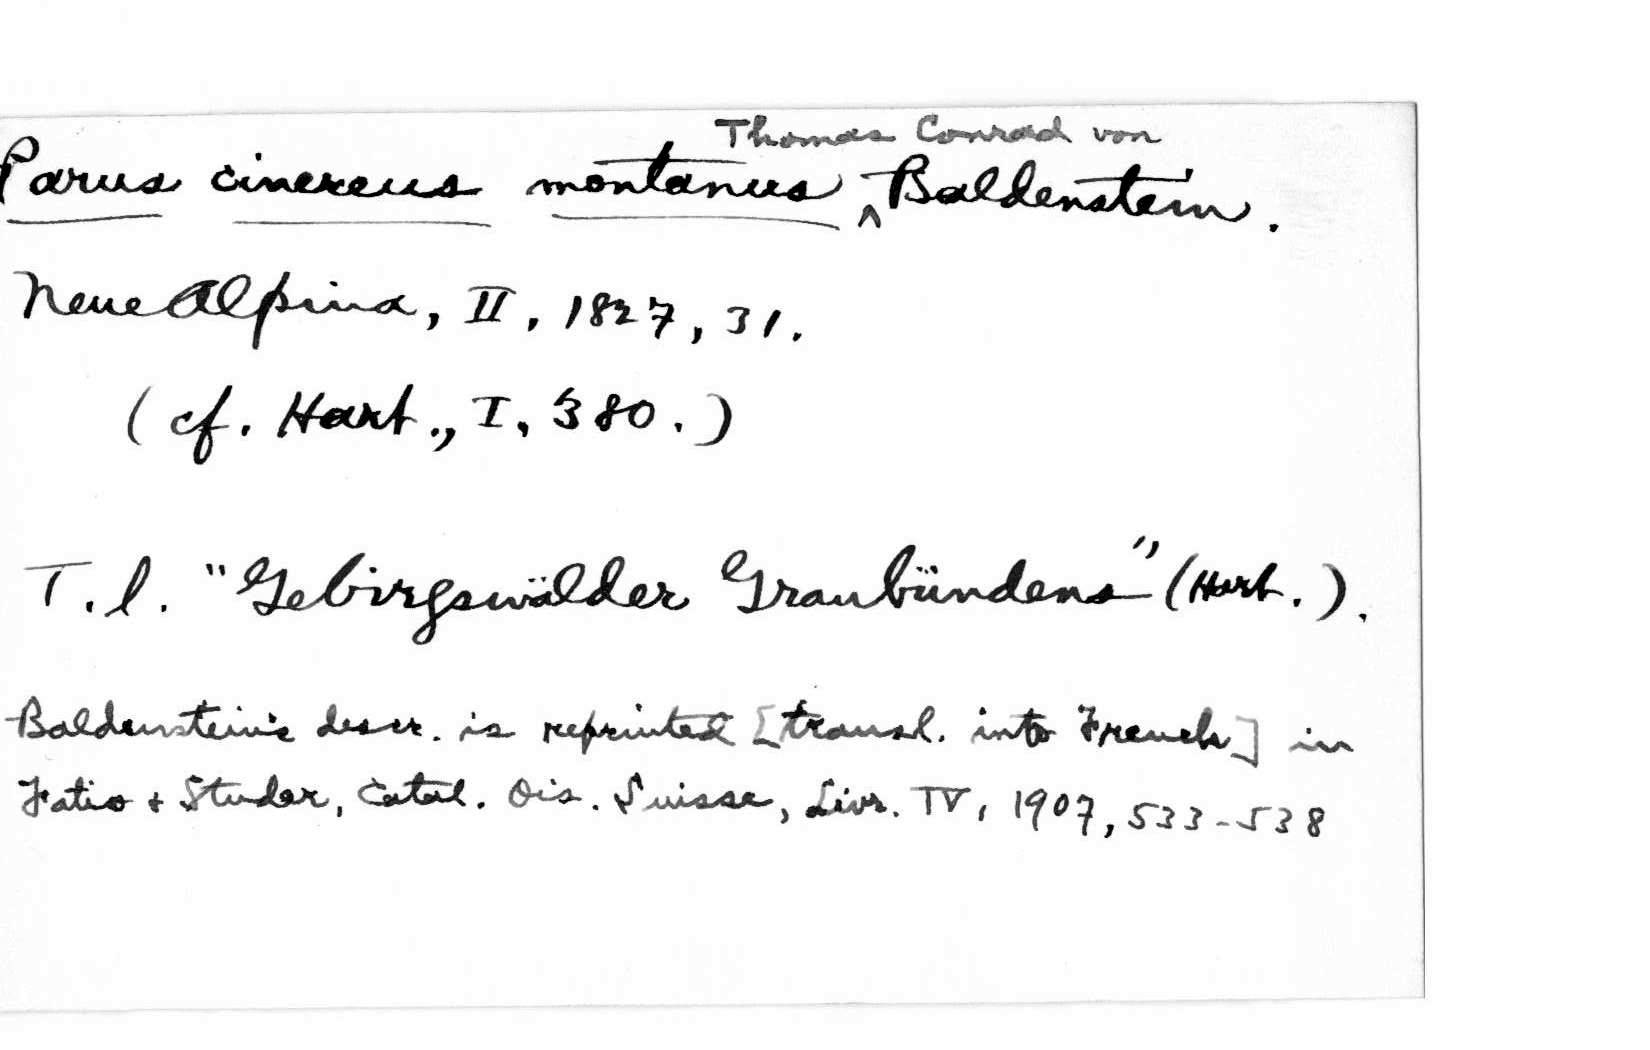 Thomas Conrad von
Parus cinereus montanus ^ Baldenstein.
Neue Alpina, II, 1827, 31.
(cf. Hart., I, 380.)
T. l. "Gebirgswälder Graubündens" (Hart.).
Baldenstein's descr. is reprinted [transl. into French] in
Fatio + Studer, Catal. Ois. Suisse, Livr. IV, 1907, 533-538